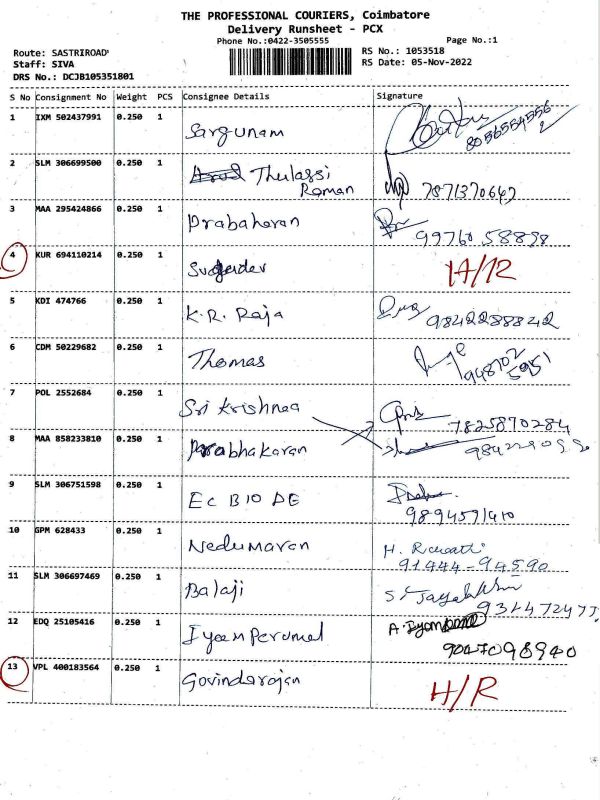 THE PROFESSIONAL COURIERS, Coimbatore
Delivery Runsheet - PCX
Phone No.:0422-3505555 Page No.:1
Route: SASTRIROAD' RS No.: 1053518
Staff: SIVA RS Date: 05-Nov-2022
DRS No.: DCJB105351801
S No Consignment No Weight PCS Consignee Details Signature
1 IXM 502437991 0.250 1 Sargunam 8056554556
2 SLM 306699500 0.250 1 Thulassi
Raman 7871370647
3 MAA 295424866 0.250 1 Prabaharan
99760 58898
4 KUR 694110214 0.250 1
5 KDI 474766 0.250 1 K.R. Raja 9842288842
6 CDM 50229682 0.250 1 Thomas
7 POL 2552684 0.250 1 Sri Krishnaa 7825870284
8 MAA 858233810 0.250 1 Prabhakaran
9 SLM 306751598 0.250 1 EC BIO DE
9894571410
10 GPM 628433 0.250 1 Nedumaran H. Revathi
91444-94590
11 SLM 306697469 0.250 1 Balaji
12 EDQ 25105416 0.250 1 Iyam Perumal
9047098940
13 VPL 400183564 0.250 1 Govindarajan H/R